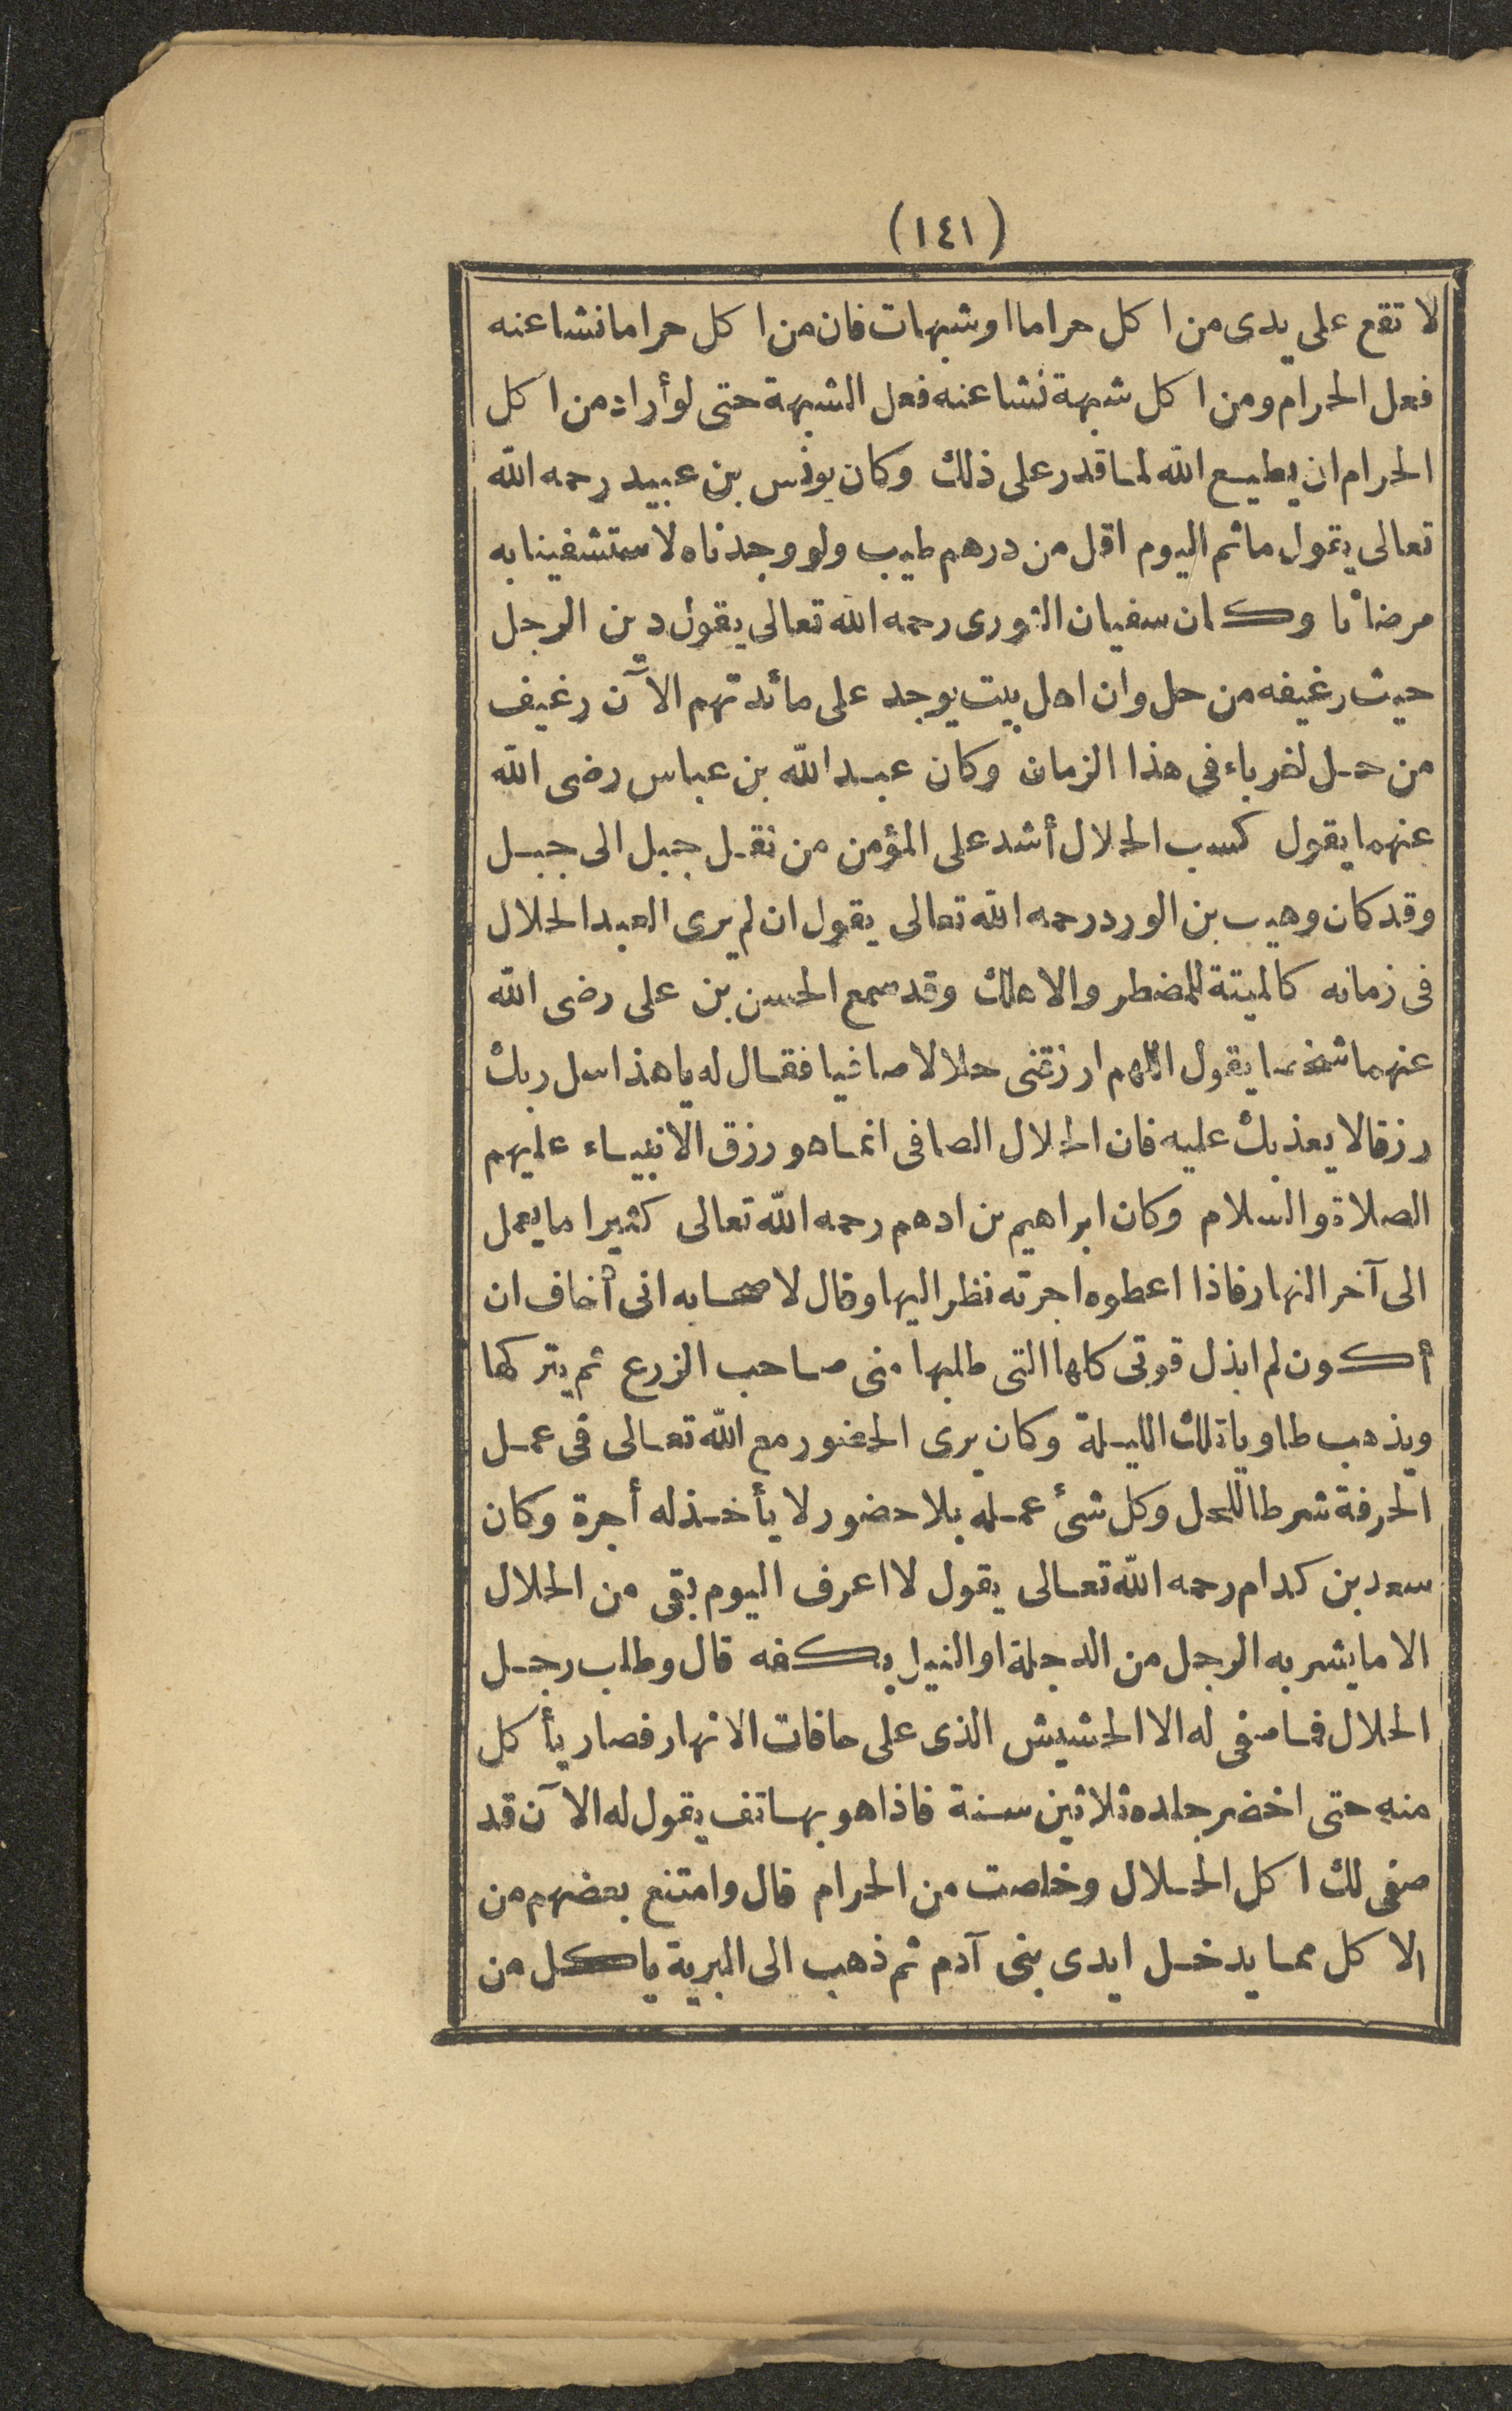 (١٤١)
لا تقع على يدى من اكل حراما اوشبهات فان من اكل حراما نشا عنه
فعل الحرام ومن اكل شبهة نشا عنه فعل الشبهة حتى لو أراد من اكل
الحرام ان يطيع الله لما قدر على ذلك وكان يونس بن عبيد رحمه الله
تعالى يقول ماثم اليوم اقل من درهم طيب ولو وجدناه لاستشفينا به
مرضانا وكان سفيان الثورى رحمه الله تعالى يقول دين الرجل
حيث رغيفه من حل وان اهل بيت يوجد على مائدتهم الآن رغيف
من حل لغرباء فى هذا الزمان وكان عبد الله بن عباس رضى الله
عنهما يقول كسب الحلال أشد على المؤمن من نقل جبل الى جبل
وقد كان وهيب بن الورد رحمه الله تعالى يقول ان لم يرى العبد الحلال
فى زمانه كالميتة للمضطر والاهلك وقد سمع الحسن بن على رضى الله
عنهما شخصا يقول اللهم ارزقنى حلالا صافيا فقال له يا هذا سل ربك
رزقا لا يعذبك عليه فان الحلال الصافى انما هو رزق الانبياء عليهم
الصلاة والسلام وكان ابراهيم بن ادهم رحمه الله تعالى كثيرا ما يعمل
الى آخر النهار فاذا اعطوه اجرته نظر اليها وقال لاصحابه انى أخاف ان
أكون لم ابذل قوتى كلها التى طلبها منى صاحب الزرع ثم يتركها
ويذهب طاويا تلك الليلة وكان يرى الحضور مع الله تعالى فى عمل
الحرفة شرطا للحل وكل شئ عمله بلا حضور لا يأخذ له أجرة وكان
سعد بن كدام رحمه الله تعالى يقول لا اعرف اليوم بقى من الحلال
الا ما يشربه الرجل من الدجلة او النيل بكفه قال وطلب رجل
الحلال فما صفى له الا الحشيش الذى على حافات الانهار فصار يأكل
منه حتى اخضر جلده ثلاثين سنة فاذا هو بهاتف يقول له الآن قد
صفى لك اكل الحلال وخلصت من الحرام قال وامتنع بعضهم من
الاكل مما يدخل ايدى بنى آدم ثم ذهب الى البرية ياكل من